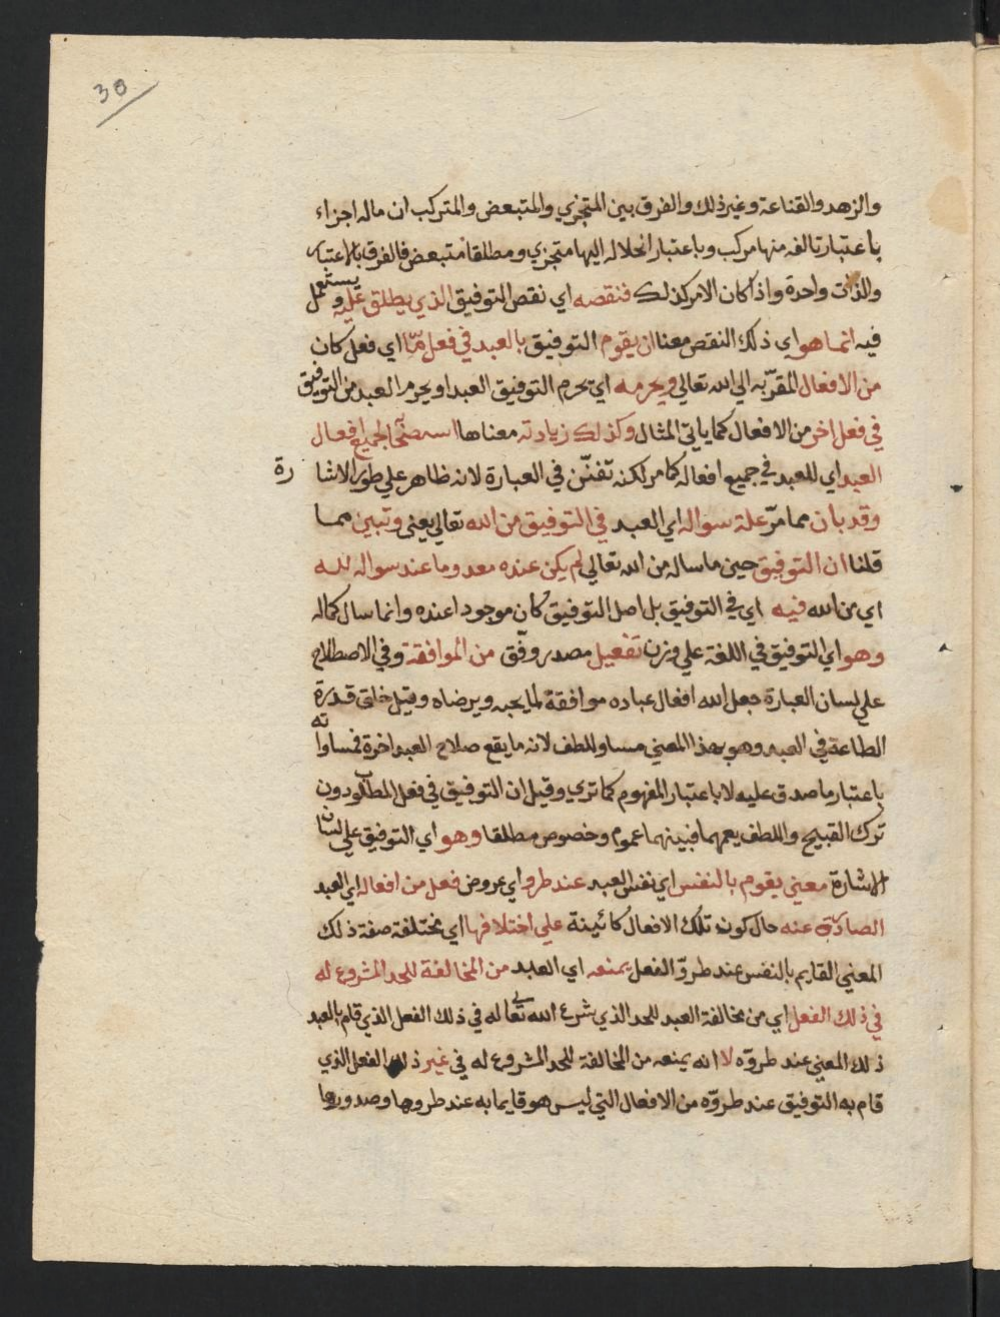 30
والزهد والقناعة وغير ذلك والفرق بين المتجزي والمتبعض والمتركب ان ماله اجزاء
باعتبار تالفه منها مركب وباعتبار انحلاله اليها متجزي ومطلقا متبعض فالفرق بالاعتبار
والذات واحدة واذا كان الامر كذلك فنقصه اي نقص التوفيق الذي يطلق عليه ويستعمل
فيه انما هو اي ذلك النقص معنا ان يقوم التوفيق بالعبد في فعل مّا اي فعل كان
من الافعال المقرّبه الي الله تعالي ويحرمه اي يحرم التوفيق العبد او يحرم العبد من التوفيق
في فعل اخر من الافعال كما ياتي المثال وكذلك زيادته معناها استصحابه لجميع افعال
العبد اي للعبد في جميع افعاله كما مر لكنه تفنّن في العبارة لانه ظاهر علي طور الاشارة
وقد بان مما مرّ علة سواله اي العبد في التوفيق من الله تعالي يعني وتبين مما
قلنا ان التوفيق حين ما ساله من الله تعالي لم يكن عنده معدوما عند سواله لله
اي من الله فيه اي في التوفيق بل اصل التوفيق كان موجودا عنده وانما سال كماله
وهو اي التوفيق في اللغة علي وزن تفعيل مصدر وفّق من الموافقة وفي الاصطلاح
علي لسان العبارة جعل الله افعال عباده موافقة لما يحبه ويرضاه وقيل خلق قدرة
الطاعة في العبد وهو بهذا المعني مساو للطف لانه ما يقع صلاح العبد اخرة فمساواته
باعتبار ما صدق عليه لا باعتبار المفهوم كما تري وقيل ان التوفيق في فعل المطلوب دون
ترك القبيح واللطف يعمهما فبينهما عموم وخصوص مطلقا وهو اي التوفيق علي لسان
الاشارة معني يقوم بالنفس اي نفس العبد عند طرو اي عروض فعل من افعاله اي العبد
الصادرة عنه حال كون تلك الافعال كائينة علي اختلافها اي مختلفة صفة ذلك
المعني القايم بالنفس عند طروّ الفعل يمنعه اي العبد من المخالفة للحد المشروع له
في ذلك الفعل اي من مخالفة العبد للحد الذي شرع الله تعالي له في ذلك الفعل الذي قام بالعبد
ذلك المعني عند طروّه لا انه يمنعه من المخالفة للحد المشروع له في غير ذلك الفعل الذي
قام به التوفيق عند طروّه من الافعال التي ليس هو قايما به عند طروها وصدورها